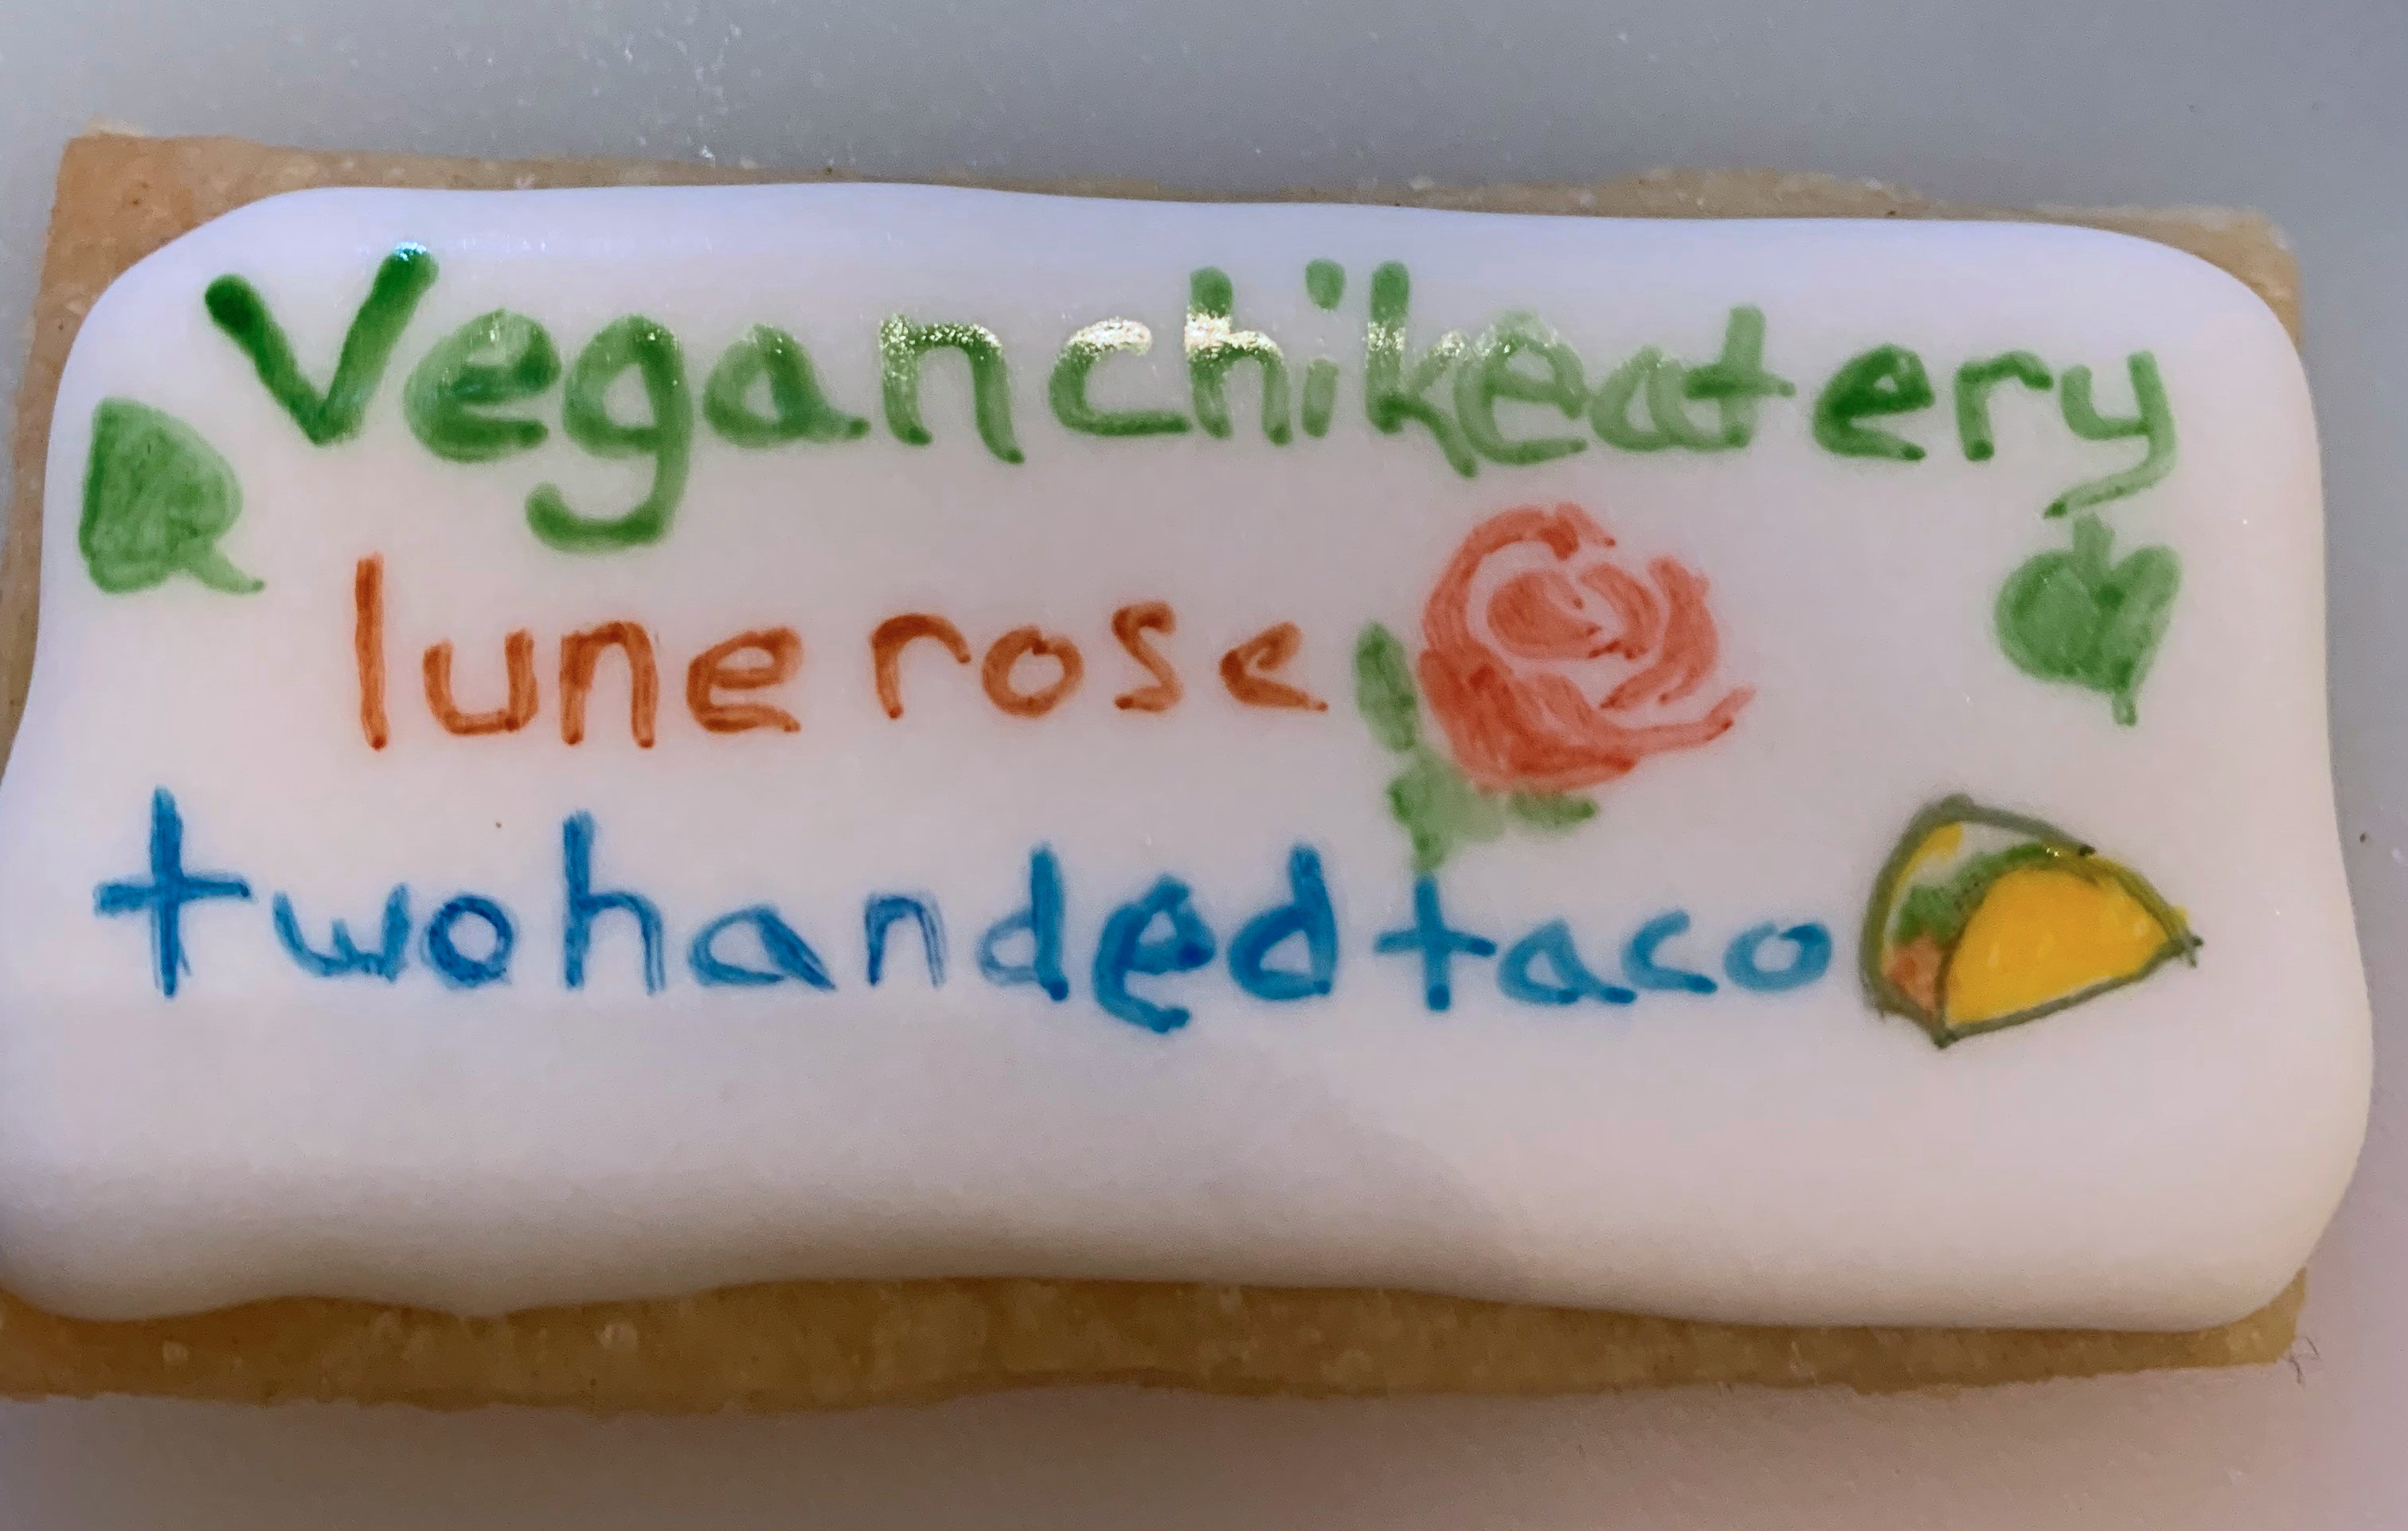 Veganchikeatery
lunerose
twohandedtaco